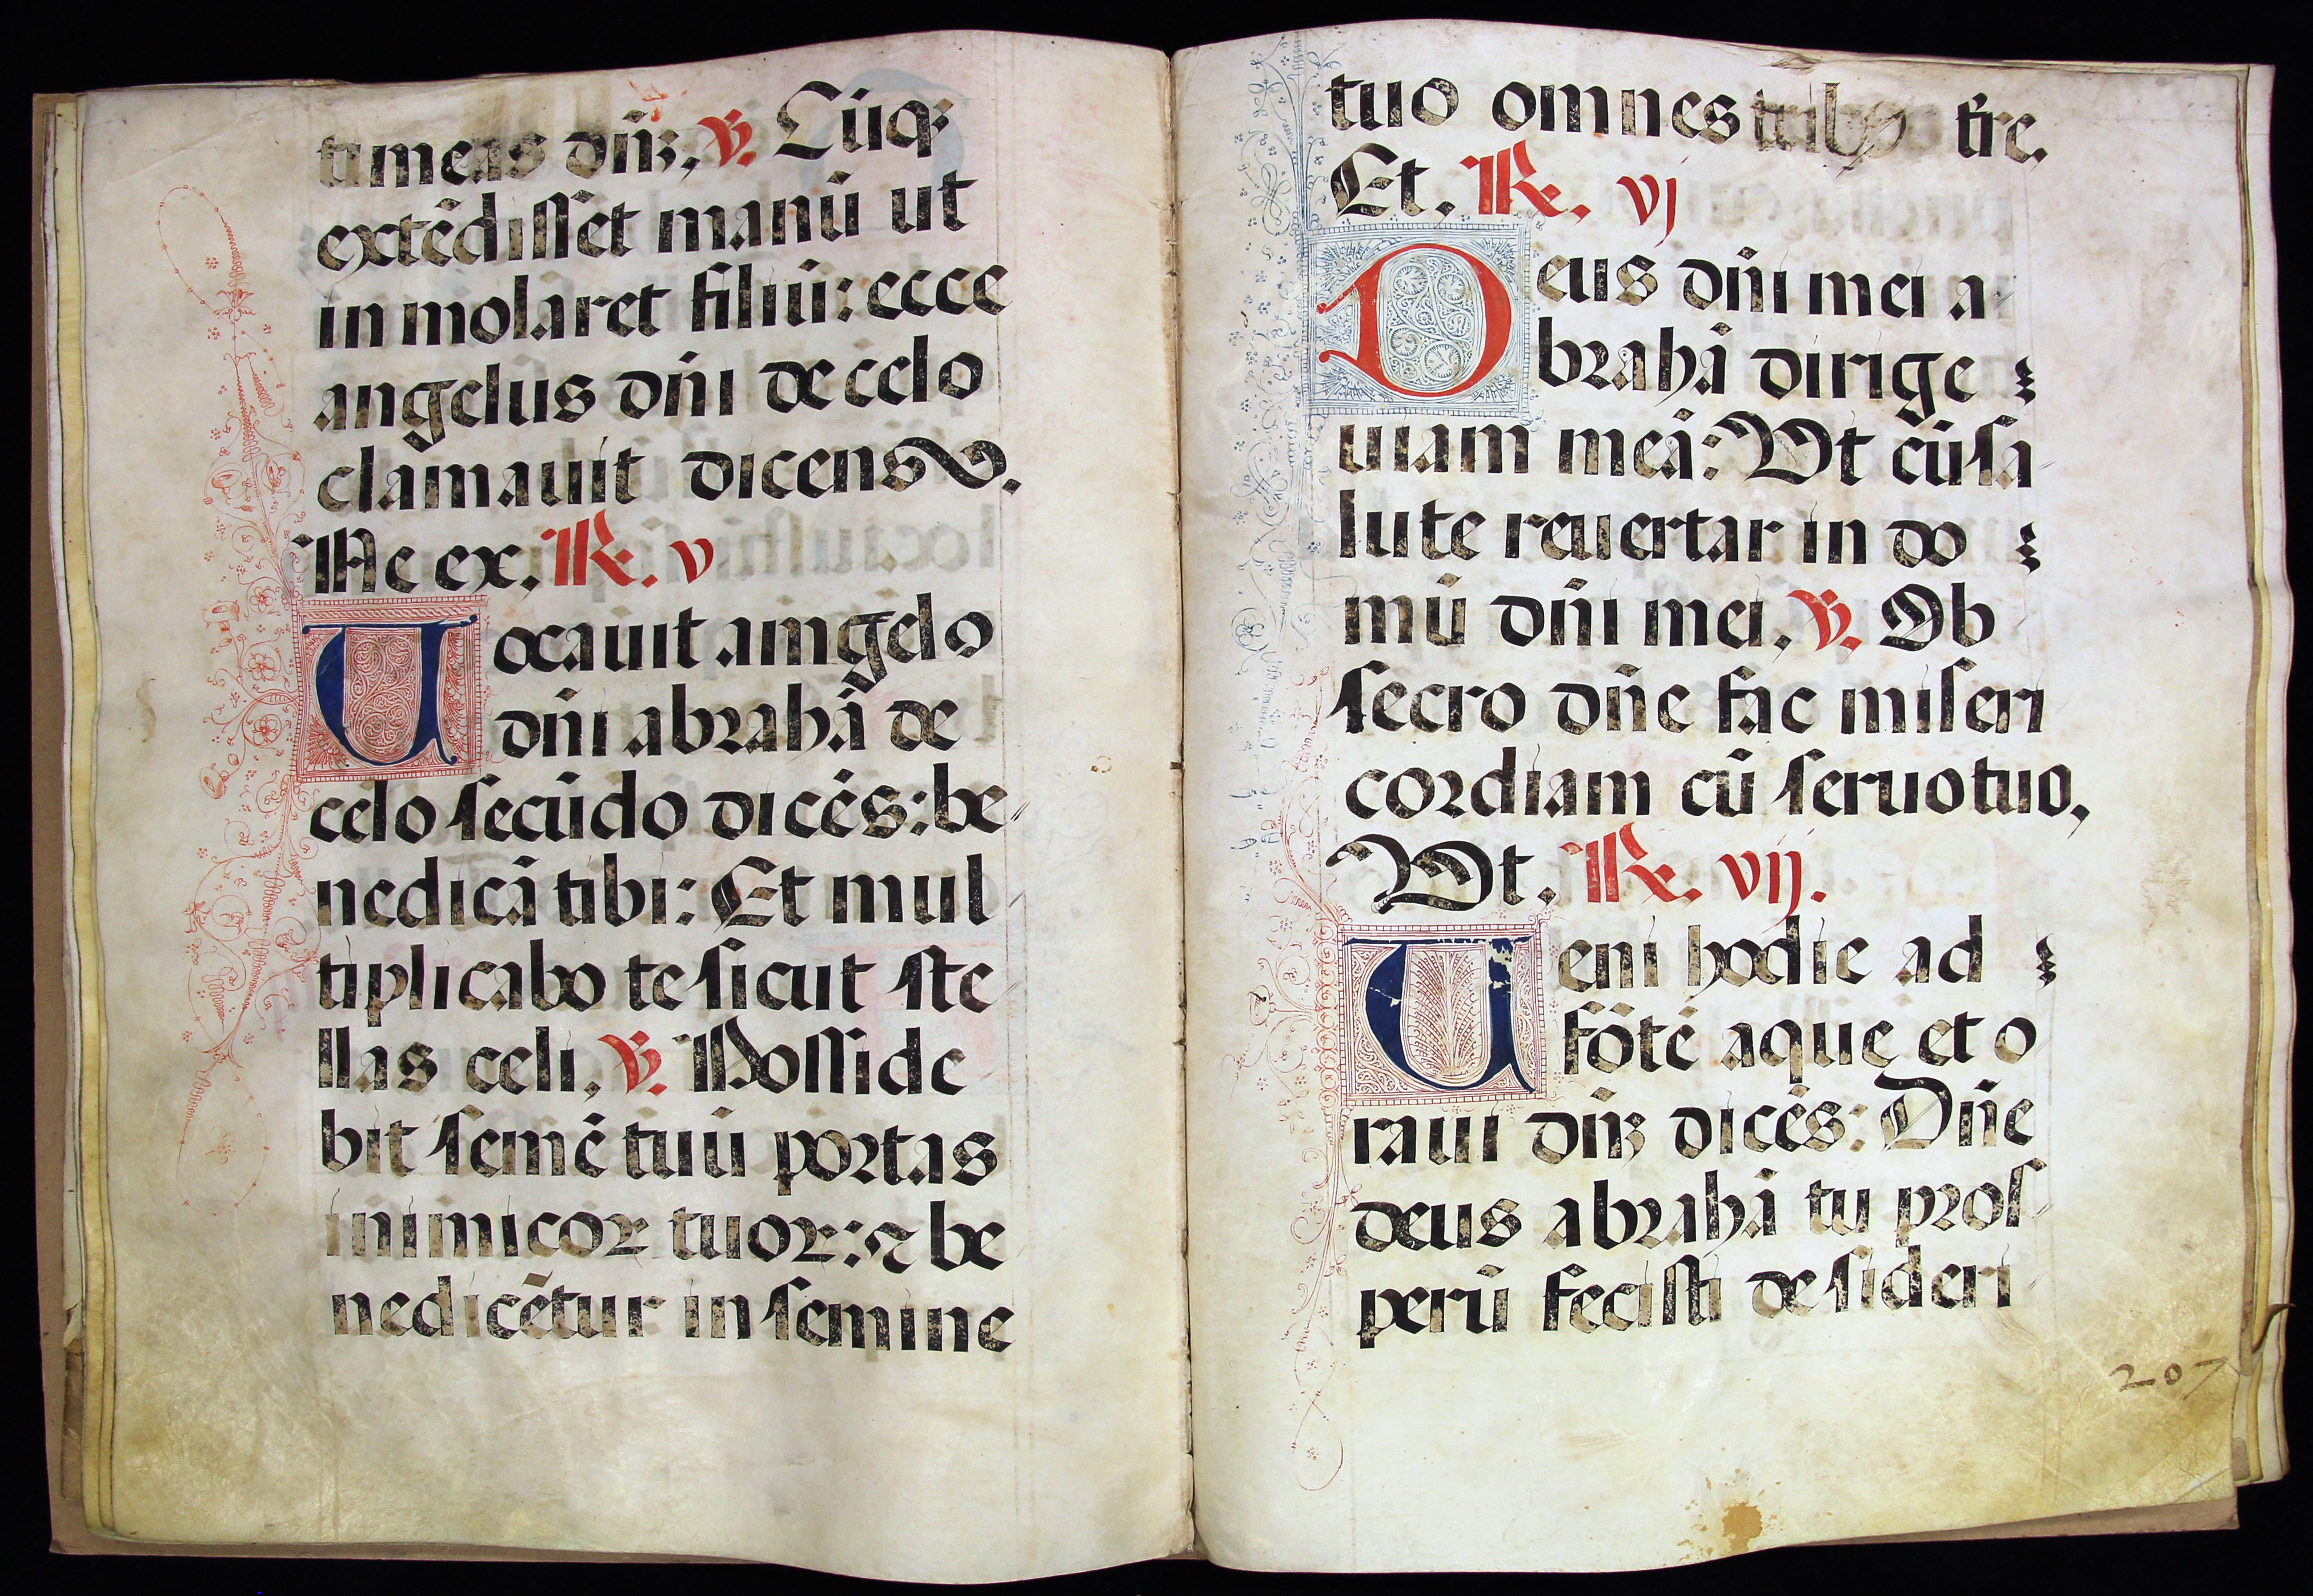 timeas dn̄ꝫ, ℣. Cūqꝫ
extēdisset manū ut
in molaret filiū: ecce
angelus dn̄i de celo
clamauit dicens.
Ne ex, ℟. v
Uocauit amgelo
dn̄i abrahā de
celo secūdo dicēs: be
nedicā tibi: Et mul
tiplicabo te sicut ste
llas celi, ℣. Posside
bit semē tuū portas
inimicoꝝ tuoꝝ: ⁊ be
nedicētur in semine
tuo omnes trē.
Et. ℟. vj
Deus dn̄i mei a
brahā dirige
uiam meā: Vt cū sa
lute reuertar in do
mū dn̄i mei, ℣. Ob
secro dn̄e fac miseri
cordiam cū seruo tuo,
Vt. ℟. vij.
Ueni hodie ad
fōtē aque et o
raui dn̄ꝫ dicēs: Dn̄e
deus abrahā tu pros
perū fecisti desideri
207